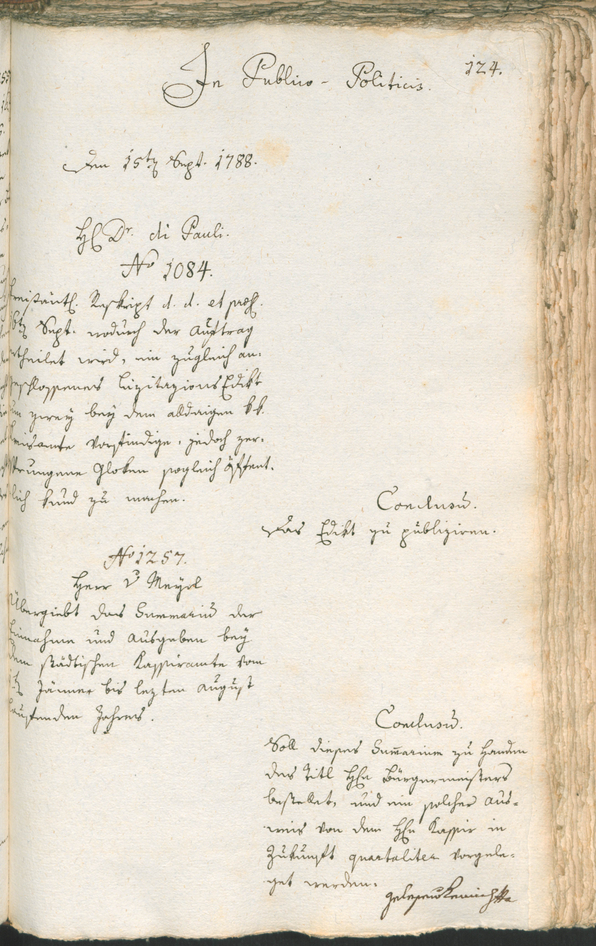 124.
In Publico-Politicis.
Den 15ten Sept. 1788.
H. Dr. di Pauli.
No 1084.
Kreisämtl. Reskript d. d. et præs.
6ten Sept. wodurch der Auftrag
ertheilet wird, ein zugleich an-
geschlossenes Lizitazions Edikt
zwey bey dem alldaigen kk.
Kreisamte vorfindige, jedoch zer-
sprungene Gloken sogleich öffent-
lich kund zu machen.
Conclusum.
Das Edikt zu publiziren.
No 1257.
Herr v Mayrl
Übergiebt das Summarium der
Einnahme und Ausgaben bey
dem städtischen Kassieramte vom
Jänner bis lezten August
laufenden Jahres.
Conclusum.
Soll dieses Summarium zu Handen
des Titl Hhn Bürgermeisters
bestellet, und ein solcher Aus-
weis von dem Hhn Kassier in
Zukunft quartaliter vorgele-
get werden.